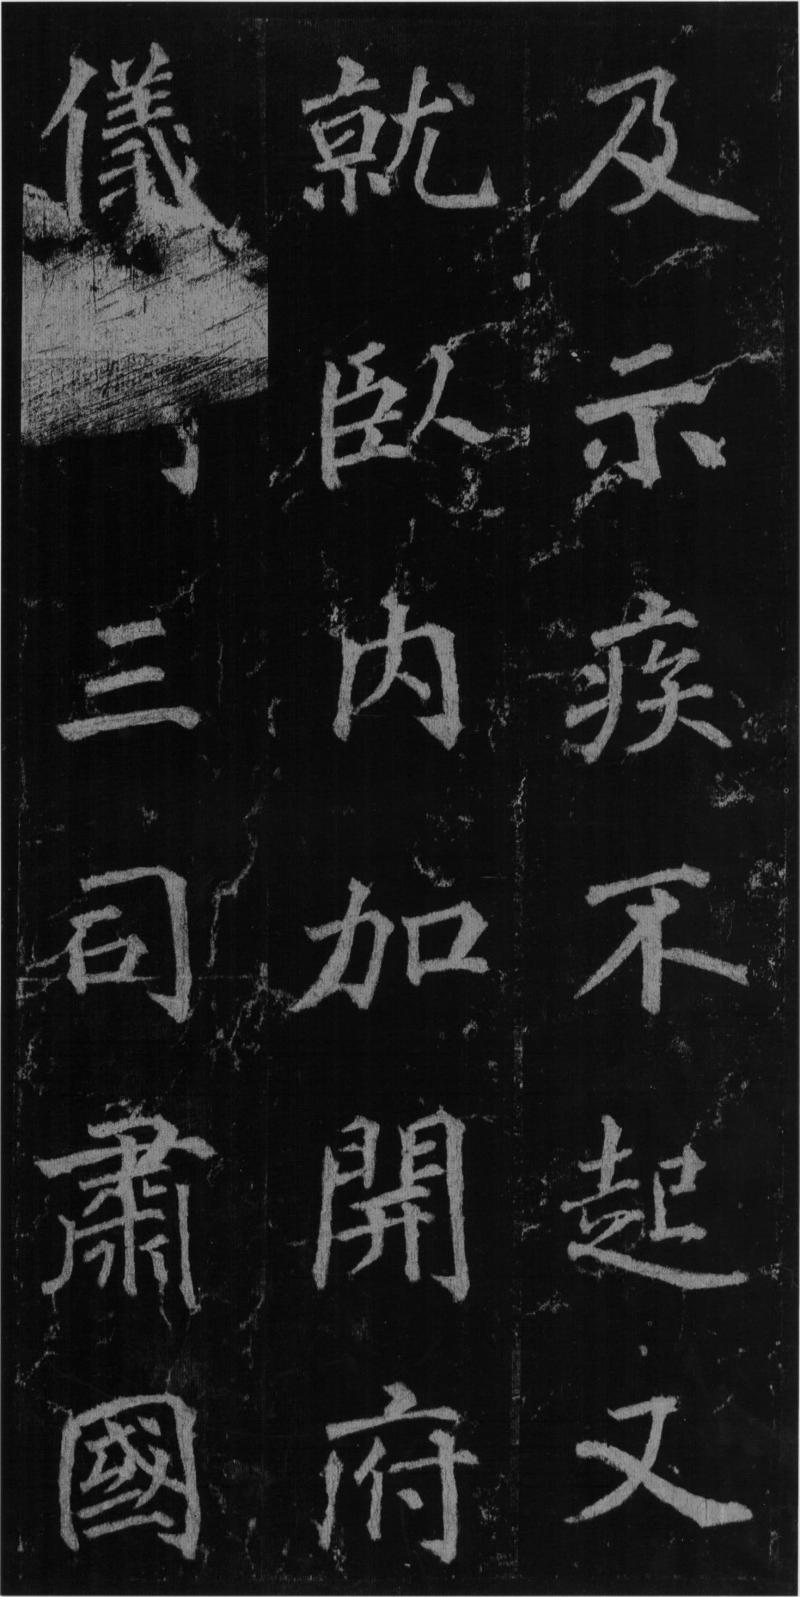 及示疾不起又
就臥内加開府
儀三司肅國